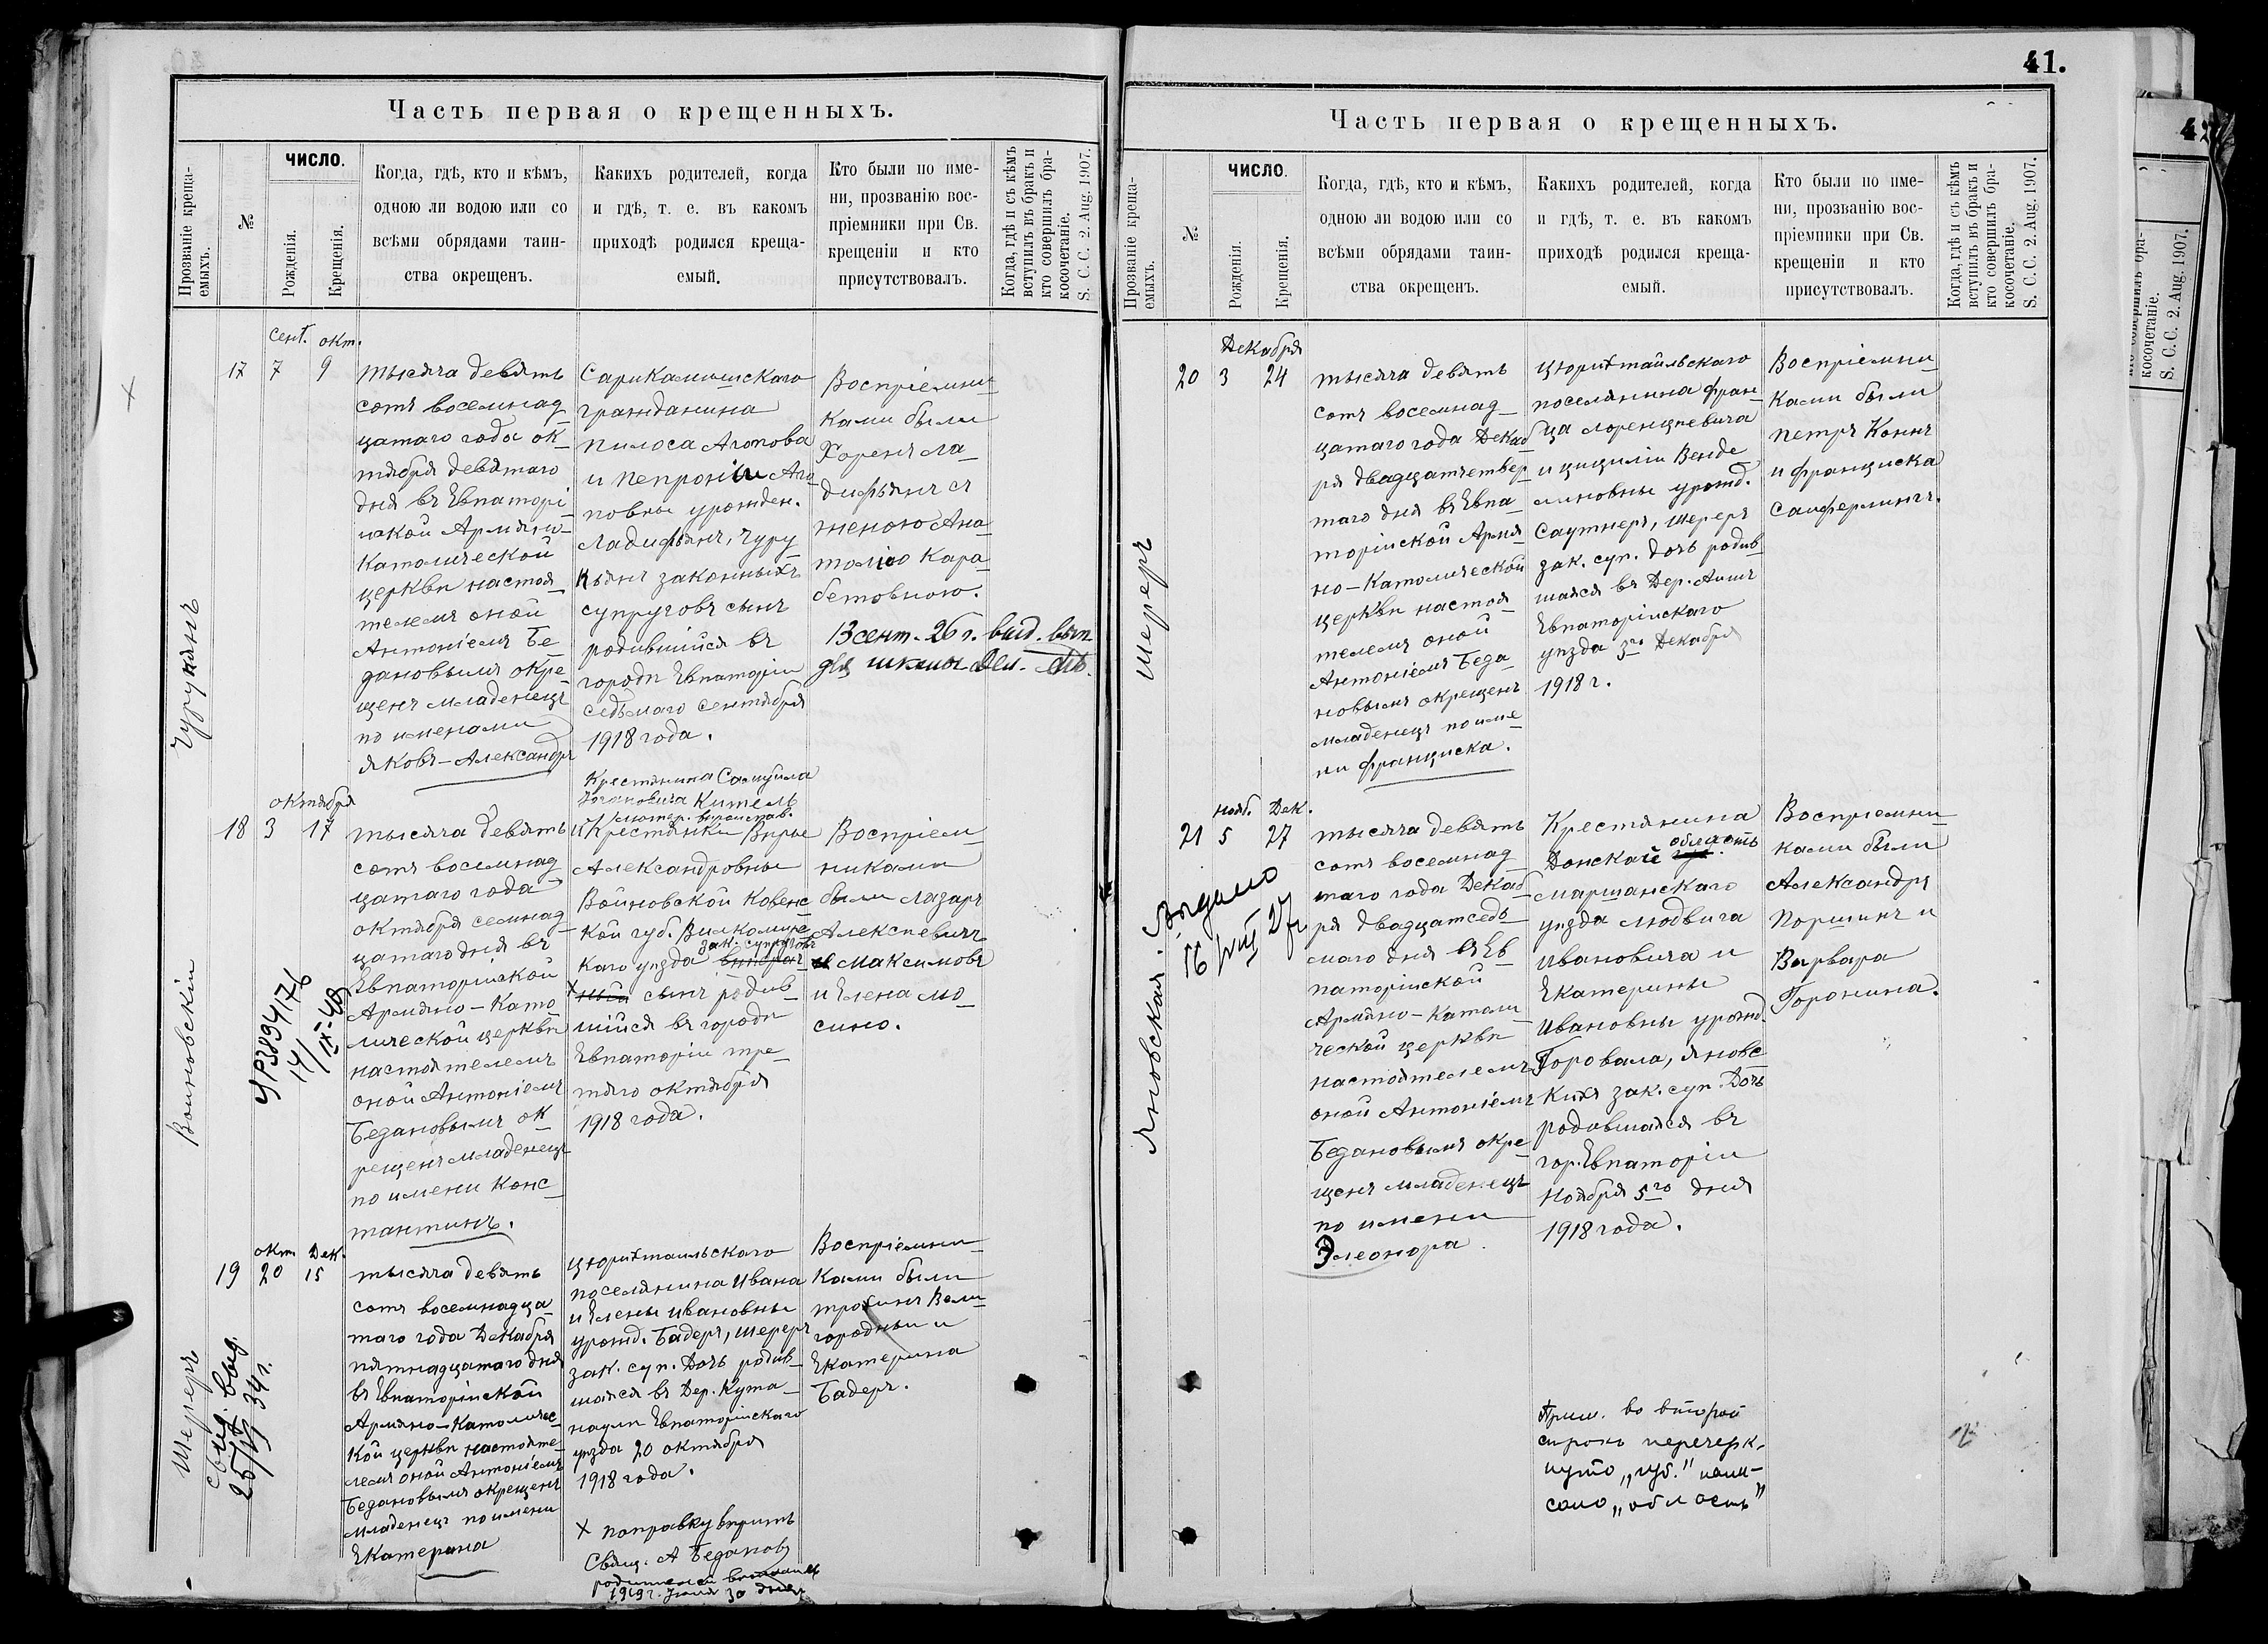 41.
Часть первая о крещенныхъ.
Прозваніе креща-
емыхъ.
№
ЧИСЛО.
Рожденія.
Крещенія.
Когда, гдѣ, кто и кѣмъ,
одною ли водою или со
всѣми обрядами таин-
ства окрещенъ.
Какихъ родителей, когда
и гдѣ, т. е. въ какомъ
приходѣ родился креща-
емый.
Кто были по име-
ни, прозванію вос-
пріемники при Св.
крещеніи и кто
присутствовалъ.
Когда, гдѣ и съ кѣмъ
вступилъ въ бракъ и
кто совершилъ бра-
косочетаніе.
S. C. C. 2. Aug. 1907.
Чурукянъ
17
Сент. окт.
7 9
тысяча девять
сотъ восемнад-
цатаго года ок-
тября девятаго
дня въ Евпаторі-
йской Армяно-
Католической
церкви настоя-
телемъ оной
Антоніемъ Бе-
дановымъ окре-
щенъ младенецъ
по именами
Яковъ-Александръ
Сарикамишскаго
гражданина
Пилоса Агопова
и Пепроніи Аго-
повны урожден.
Ладифьянъ, Чуру-
кьянъ законныхъ
супруговъ сынъ
родившійся въ
городѣ Евпаторіи
седьмаго Сентября
1918 года.
Воспріемни-
ками были
Хоренъ Ла-
дифьянъ съ
женою Ана-
толію Кара-
бетовною.
13 сент. 26 г. выд. вып.
для школы
Войновскій
18
октября
3 17
ЧР3894176
14/IX-48
тысяча девять
сотъ восемнад-
цатаго года
октября семнад-
цатаго дня въ
Евпаторійской
Армяно-Като-
лической церкви
настоятелемъ
оной Антоніемъ
Бедановымъ ок-
рещенъ младенецъ
по имени Конс-
тантинъ.
Крестьянина Самуила
Китель
лютер. вѣроиспов.
и Крестьянки Вѣры
Александровны
Войновской Ковенс-
кой губ. Вилкомирс-
зак. супруговъ
каго уѣзда внѣбрач-
х ный сынъ родив-
шійся въ городѣ
Евпаторіи тре-
тяго октября
1918 года.
Воспріем-
никами
были Лазарь
Алексѣевичъ
Максимовъ
и Елена Мо-
сино.
Шереръ
19
окт. Дек.
20 15
Свид. выд.
25/VI 34 г.
тысяча девять
сотъ восемнадца-
таго года Декабря
пятнадцатаго дня
въ Евпаторійской
Армяно-Католичес-
кой церкви настояте-
лемъ оной Антоніемъ
Бедановымъ окрещенъ
младенецъ по имени
Екатерина
Цюрихтальскаго
поселянина Ивана
и Елены Ивановны
урожд. Бадеръ, Шереръ
зак. суп. дочь родив-
шаяся въ Дер. Кута-
наули Евпаторійскаго
уѣзда 20 октября
1918 года.
Воспріемни-
ками были
Вели-
городный и
Екатерина
Бадеръ.
х поправку вѣрить
Свящ. А Бедановъ
1919 г. Іюня 30 дня
Часть первая о крещенныхъ.
Прозваніе креща-
емыхъ.
№
ЧИСЛО.
Рожденія.
Крещенія.
Когда, гдѣ, кто и кѣмъ,
одною ли водою или со
всѣми обрядами таин-
ства окрещенъ.
Какихъ родителей, когда
и гдѣ, т. е. въ какомъ
приходѣ родился креща-
емый.
Кто были по име-
ни, прозванію вос-
пріемники при Св.
крещеніи и кто
присутствовалъ.
Когда, гдѣ и съ кѣмъ
вступилъ въ бракъ и
кто совершилъ бра-
косочетаніе.
S. C. C. 2. Aug. 1907.
Шереръ
20
Декабря
3 24
тысяча девять
сотъ восемнад-
цатаго года Декаб-
ря двадцатчетвер-
таго дня въ Евпа-
торійской Армя-
но-Католической
церкви настоя-
телемъ оной
Антоніемъ Беда-
новымъ окрещенъ
младенецъ по име-
ни Франциска.
Цюрихтайльскаго
поселянина Фран-
ца Лоренцевича
и Цициліи Венде-
линовны урожд.
Саутнеръ, Шереръ
зак. суп. дочь родив-
шаяся въ Дер. Аипъ
Евпаторійскаго
уѣзда 3го Декабря
1918 г.
Воспріемни-
ками были
Петръ Коннъ
и Франциска
Санферлингъ.
Яновская
21
Нояб. Дек.
5 27
Выдано
16/VIII 27 г
тысяча девять
сотъ восемнад-
таго года Декаб-
ря двадцатседь-
маго дня въ Ев-
паторійской
Армяно-Католи-
ческой церкви
настоятелемъ
оной Антоніемъ
Бедановымъ окре-
щенъ младенецъ
по имени
Элеонора.
Крестянина
область
Донской губ.
Маршанскаго
уѣзда Людвига
Ивановича и
Екатерины
Ивановны урожд.
Горовала, Яновс-
кихъ зак. суп. Дочь
родовшаяся въ
гор. Евпаторіи
Ноября 5го дня
1918 года.
Воспріемни-
ками были
Александръ
Поршинъ и
Варвара
Горонина.
Прим. во второй
строкѣ перечерк-
нуто „губ." напи-
сано „область"
42
S. C. C. 2. Aug. 1907.